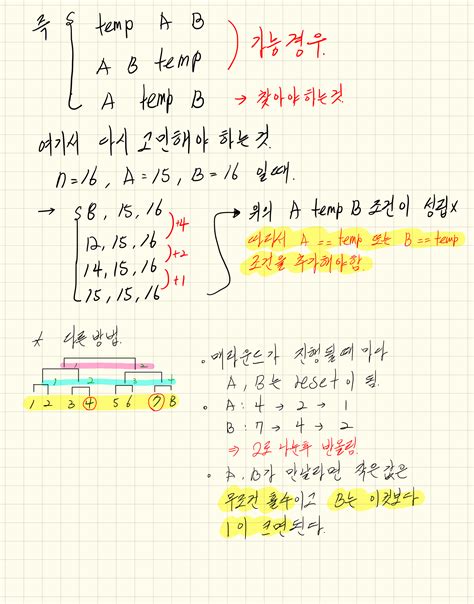 즉 temp A B
A B temp ) 가능경우.
A temp B → 찾아야하는것.
여기서 다시 고민해야 하는것.
n=16, A=15, B=16 일때.
→ 8, 15, 16
12, 15, 16
14, 15, 16
15, 15, 16
)+4
)+2
)+1
위의 A temp B 조건이 성립x
따라서 A == temp 또는 B == temp
조건을 추가해야함.
* 다른방법.
1 2
1 2 3 4
1 2 3 4 5 6 7 8
• 매라운드가 진행될때 마다
A, B는 reset이 됨.
• A : 4 → 2 → 1
B : 7 → 4 → 2
⇒ 2로 나눈후 반올림.
• A, B가 만날라면 작은값은
무조건 홀수이고 B는 이것보다
1이 크면된다.